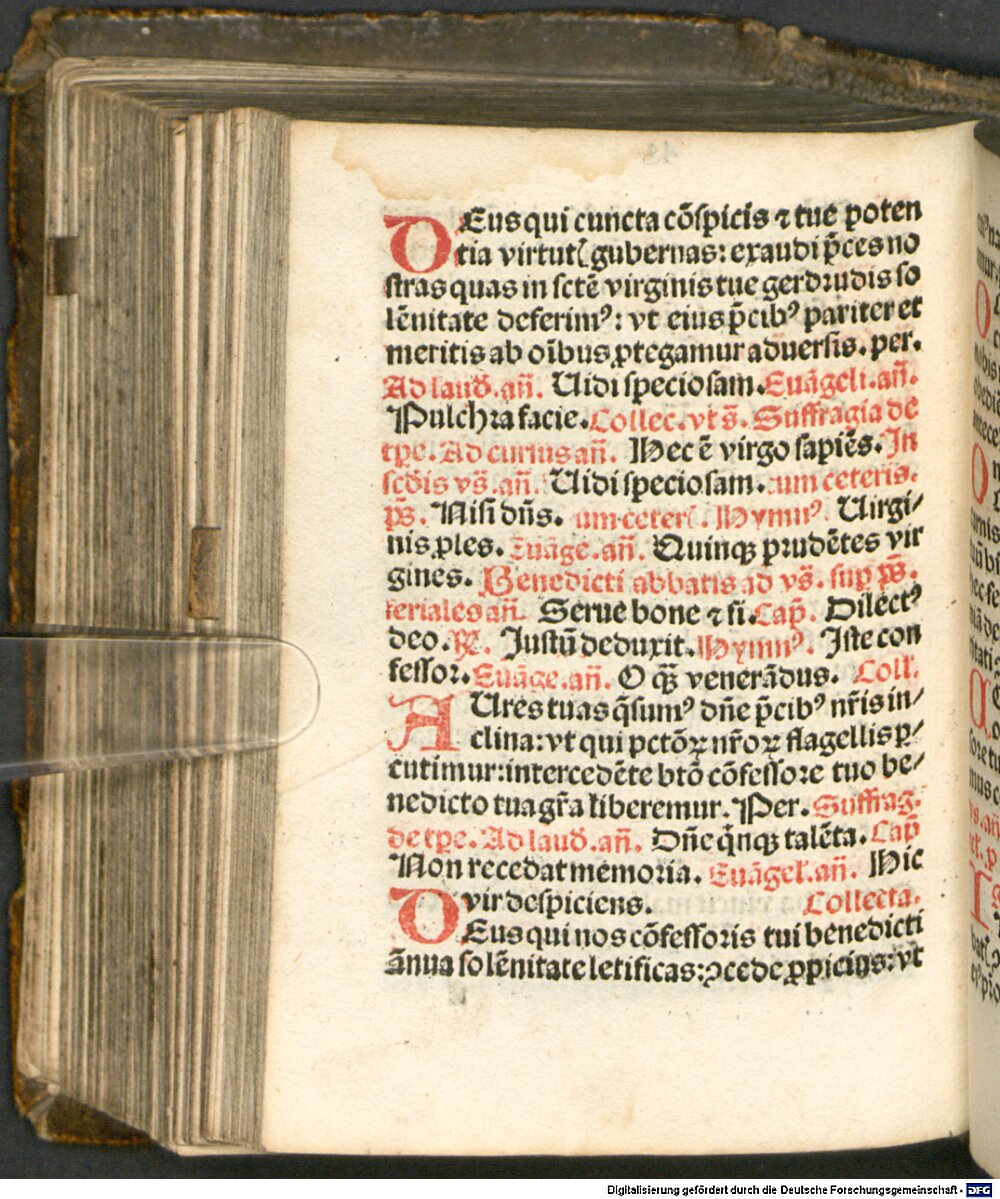 DEus qui cuncta cōspicis ⁊ tue poten
tia virtutꝭ gubernas: exaudi p̄ces no
stras quas in sctē virginis tue gerdrudis so
lēnitate deferimꝰ: vt eius p̄cibꝰ pariter et
meritis ab oībus ꝓtegamur aduersis. per.
Ad laud̄. an̄. Uidi speciosam. Euāgeli. an̄.
Pulchra facie. Collec. vt s̄. Suffragia de
tꝑe. Ad cursus an̄. Hec ē virgo sapiēs. In
scd̄is vs̄. an̄. Uidi speciosam. cum ceteris.
ps̄. Nisi dn̄s. cum ceterꝭ. Hymnꝰ. Uirgi/
nis ꝓles. Euāge. an̄. Quinqꝫ prudētes vir
gines. Benedicti abbatis ad vs̄. suꝑ ps̄.
feriales an̄. Serue bone ⁊ fi. Cap̄. Dilectꝰ
deo. ℞. Justū deduxit. Hymnꝰ. Iste con
fessor. Euāge. an̄. O qꝫ̄ venerādus. Coll.
AUres tuas q̄sumꝰ dn̄e p̄cibꝰ nr̄is in/
clina: vt qui pctōꝝ nr̄oꝝ flagellis ꝑ/
cutimur: intercedēte btō cōfessore tuo be/
nedicto tua gr̄a liberemur. Per. Suffrag.
de tꝑe. Ad laud̄. an̄. Dn̄e q̄nqꝫ talēta. Cap̄
Non recedat memoria. Euāgel. an̄. Hic
vir despiciens. Collecta.
DEus qui nos cōfessoris tui benedicti
ānua solēnitate letificas: ꝯcede ꝓpicius: vt
Digitalisierung gefördert durch die Deutsche Forschungsgemeinschaft - DFG